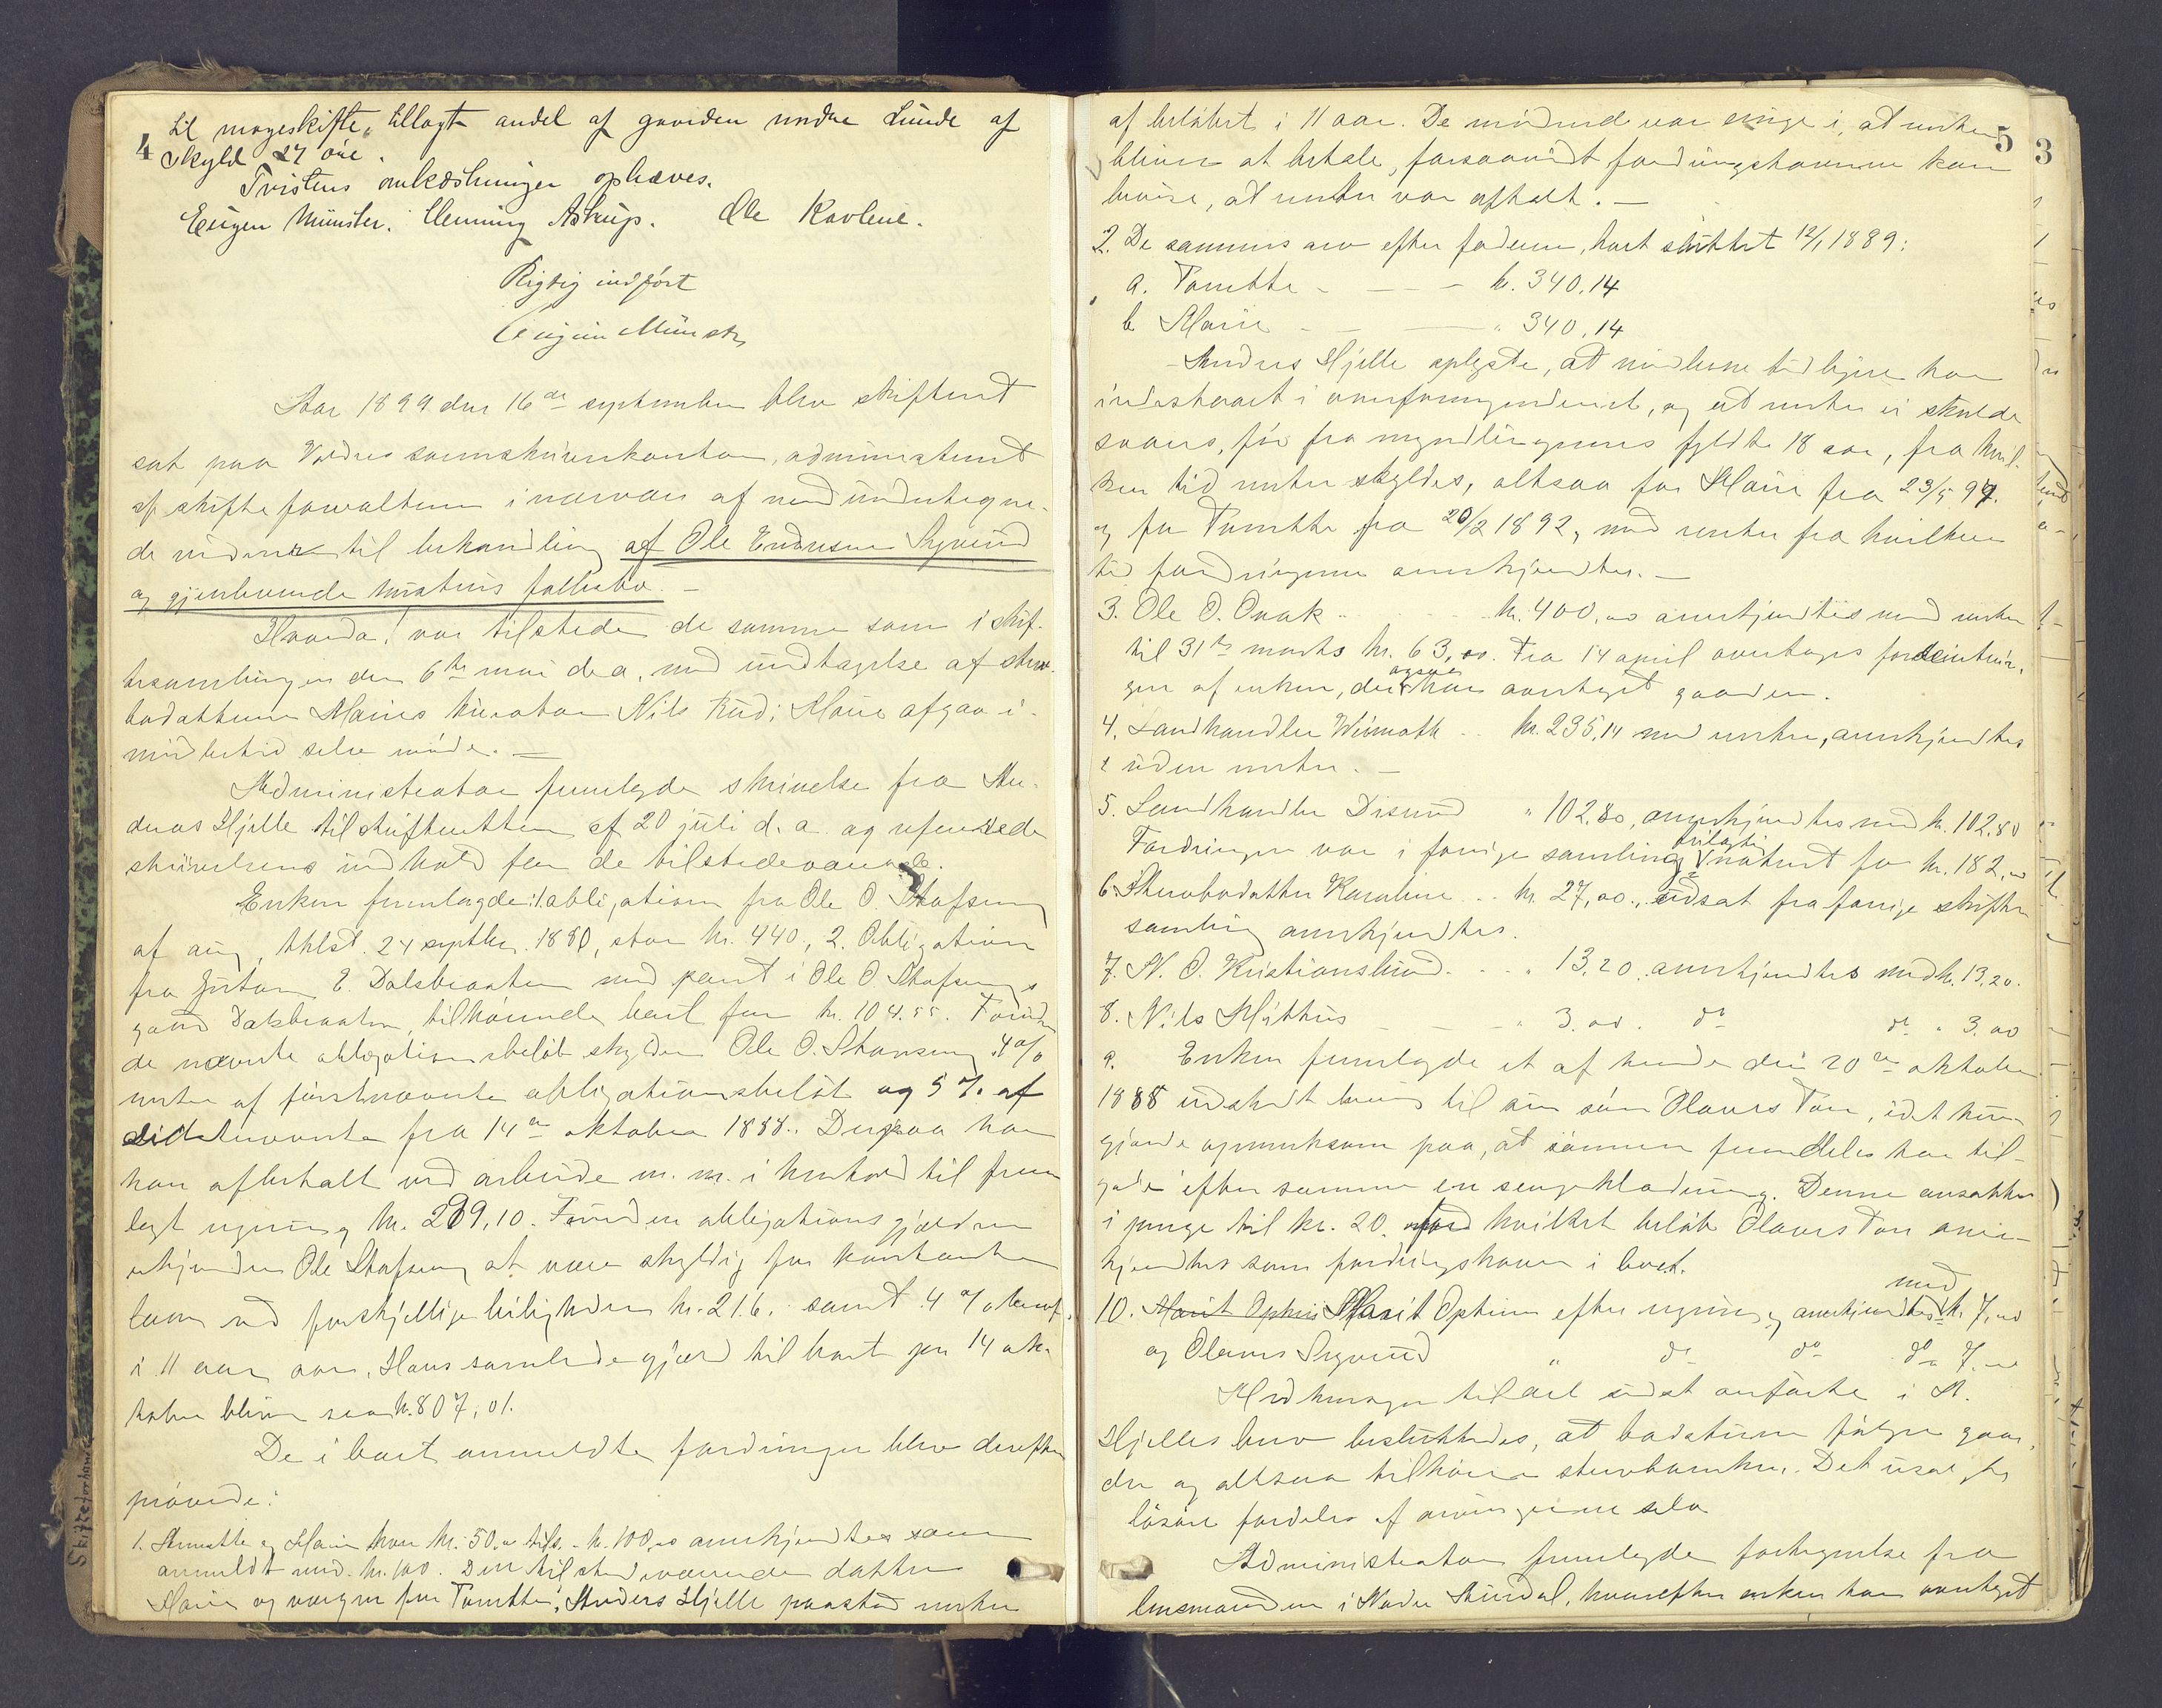 4
til mageskifte, tillagt andel af gaarden nordre Lunde af
skyld 27 øre.
Tvistens omkostninger ophæves.
Eugen Münster. Henning Askrup. Ole Kavlene.
Rigtig indført
Eugen Münster
Aar 1899 den 16de september blev skifteret
sat paa Valdres sorenskriverkontor, administreret
af skifteforvalteren i nærvær af medundertegne-
de vidner til behandling af Ole Endresen Sygvind
og gjenlevende enkes fællesbo. –
Hvorda! var tilstede de samme som i skif-
tesamlingen den 6te mai d.a. med undtagelse af sterv-
bodatteren Maries kurator Nils Rud; Marie afgav i-
midlertid selv møde. –
Administrator fremlagde skrivelse fra An-
dreas Hjelle til skifteretten af 20 juli d.a. og refererede
skrivelsens indhold for de tilstedeværende.
Enken fremlagde: 1. obligation fra Ole O. Stafseng
af aug, thlst. 24 septbr. 1880, stor kr. 440, 2. Obligation
fra Gustav E. Dalsbraaten med pant i Ole O. Stafsengs
gaard Dalsbraaten, tilhørende boet for kr. 104.55. Foruden
de nævnte obligationsbeløb skylder Ole O. Stavseng 4 %
renter af førstnævnte obligationsbeløb og 5 % af
sidstnævnte fra 14de oktober 1888. Derpaa har
han afbetalt ved arbeide m.m. i henhold til frem-
lagt regning kr. 289,10. Foruden obligationsgjælden
erkjender Ole Stafseng at være skyldig for kontante
laan ved forskjellige leiligheder kr. 216. samt 4 % deraf
i 11 aar. Hans samlede gjæld til boet per 14 ok-
tober bliver saa kr. 807,01.
De i boet anmeldte fordringer blev derefter
prøvede:
1. Tomette og Marie hver kr. 50.00 tils. kr. 100,00 anerkjendtes som
anmeldt med kr. 100. Den tilstedeværende datter
Marie og værgen for Tomette, Anders Hjelle paastod renter
5 3
af beløbet i 11 aar. De mødende var enige i, at renten
bliver at betale, forsaavidt fordringshaverne kan
bevise, at renter var aftalt. –
2. De sammes arv efter faderen, hvert sluttet 12/1 1889:
a. Tomette – – – kr. 340.14
b Marie – – " 340.14
Anders Hjelle oplyste, at midlerne tidligere har
indestaaet i overformynderiet, og at renter ei skulde
svares, før fra myndlingernes fyldte 18 aar, fra hvil-
ken tid renter skyldes, altsaa for Marie fra 23/5 97.
og for Tomette fra 20/2 1892, med renter fra hvilken
tid fordringerne anerkjendtes. –
3. Ole O. Onak kr. 400,00 anerkjendtes med renter
til 31te marts kr. 63,00. Fra 14 april overtages fordrin-
gen af enken, der ogsaa har overtaget gaarden.
4. Landhandler kr. 235,14 med renter, anerkjendtes
uden renter. –
5. Landhandler Disrud " 102.80, anerkjendtes med kr. 102.80
Fordringen var i forrige samling feilagtig noteret for kr. 182,00
6. Stervbodatter Karoline kr. 27,00, udsat fra forrige skifte-
samling anerkjendtes.
7. N. O. Kristianslund " 13.20. anerkjendtes med kr. 13.20.
8. Nils Mathus – – " 3.00. do do " 3.00
9. Enken fremlagde et af hende den 20de oktober
1888 udstedt brev til sin søn Olaves Ton, idet hun
gjorde opmerksom paa, at sønnen fremdeles har til-
gode efter samme en sengeklædning. Denne ansattes
i penge til kr. 20. for hvilket beløb Olaves Ton aner-
kjendtes som fordringshaver i boet.
10. Marit Optun efter regning anerkjendtes med kr. 7,00
og Olaves Sygvind " do do do 7.00
Med hensyn til det sidst anførte i A.
Hjelles brev besluttedes, at følger gaar-
den og altsaa tilhører stervboenken. Det usolgte
løsøre fordeles af arvingerne selv
Administrator fremlagde forkyndelse fra
lensmanden i Nordre Aurdal, hvorefter enken har overtaget
Skifteforhandl